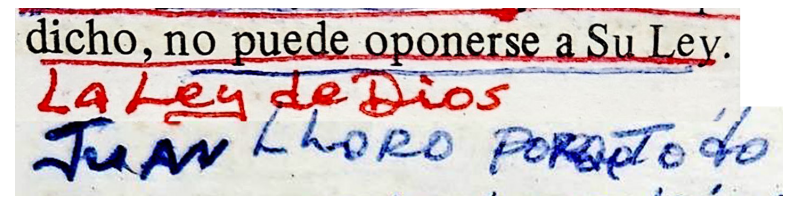 dicho, no puede oponerse a Su Ley.
La Ley de Dios
JUAN LLORO